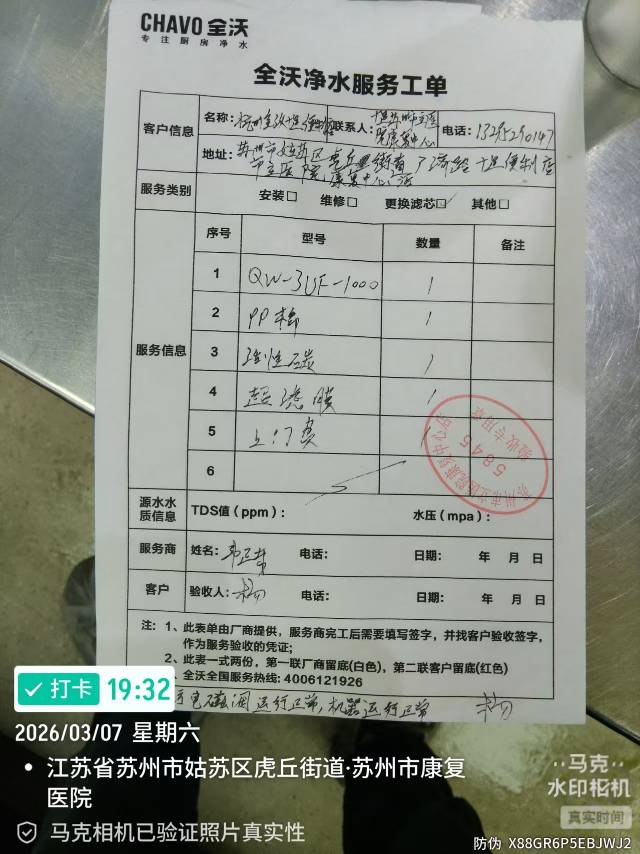 CHAVO 全沃
专注厨房净水
全沃净水服务工单
客户信息
名称:
联系人:
电话: 13295290147
地址: 苏州市姑苏区虎丘街道
市立医院康复中心
服务类别
安装☐ 维修☐ 更换滤芯☑ 其他☐
服务信息
序号 型号 数量 备注
1 QW-3UF-1000 1
2 PP棉 1
3 活性碳 1
4 超滤膜 1
5 上门费 1
6
5845
验收专用章
源水水质信息 TDS值(ppm): 水压(mpa):
服务商 姓名: 电话: 日期: 年 月 日
客户 验收人: 电话: 日期: 年 月 日
注: 1、此表单由厂商提供,服务商完工后需要填写签字,并找客户验收签字,
作为服务验收的凭证;
2、此表一式两份,第一联厂商留底(白色),第二联客户留底(红色)
3、全沃全国服务热线: 4006121926
电磁阀运行正常,机器运行正常
打卡 19:32
2026/03/07 星期六
江苏省苏州市姑苏区虎丘街道·苏州市康复
医院
马克相机已验证照片真实性
马克
水印相机
真实时间
防伪 X88GR6P5EBJWJ2